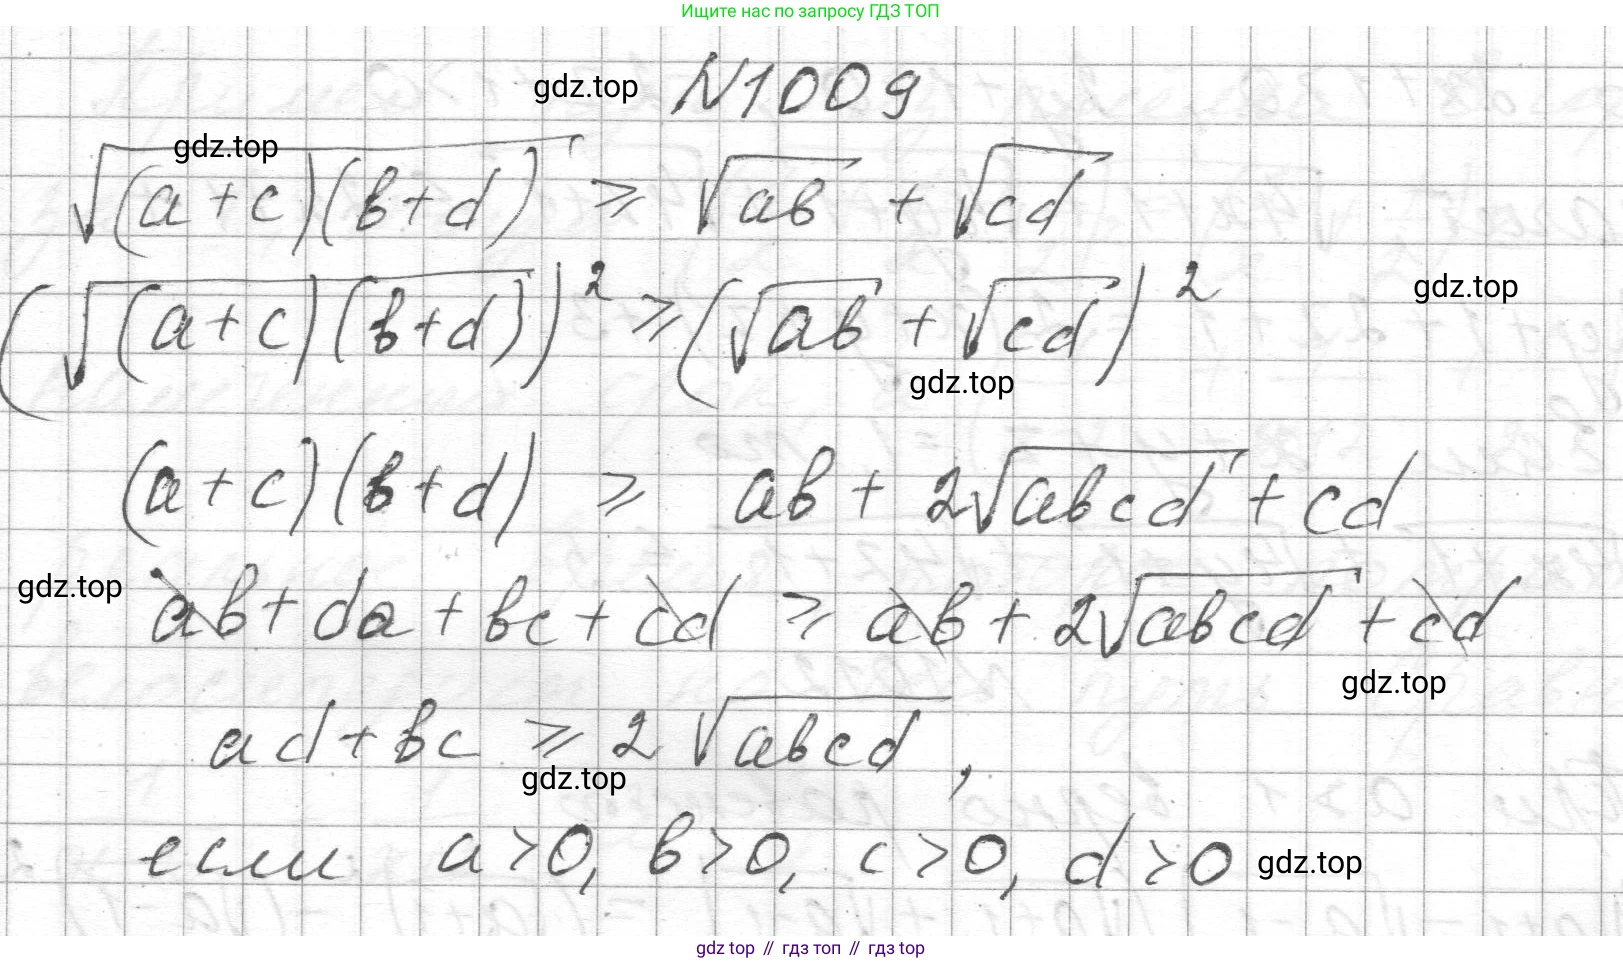 Ищите нас по запросу ГДЗ ТОП
gdz.top N1009
gdz.top
√(a+c)(b+d) ⩾ √ab + √cd
(√(a+c)(b+d))² ⩾ (√ab + √cd)²
gdz.top
gdz.top
(a+c)(b+d) ⩾ ab + 2√abcd + cd
gdz.top
ab + da + bc + cd ⩾ ab + 2√abcd + cd
gdz.top
ad + bc ⩾ 2√abcd,
gdz.top
если a>0, b>0, c>0, d>0 gdz.top
gdz top // гдз топ // гдз top